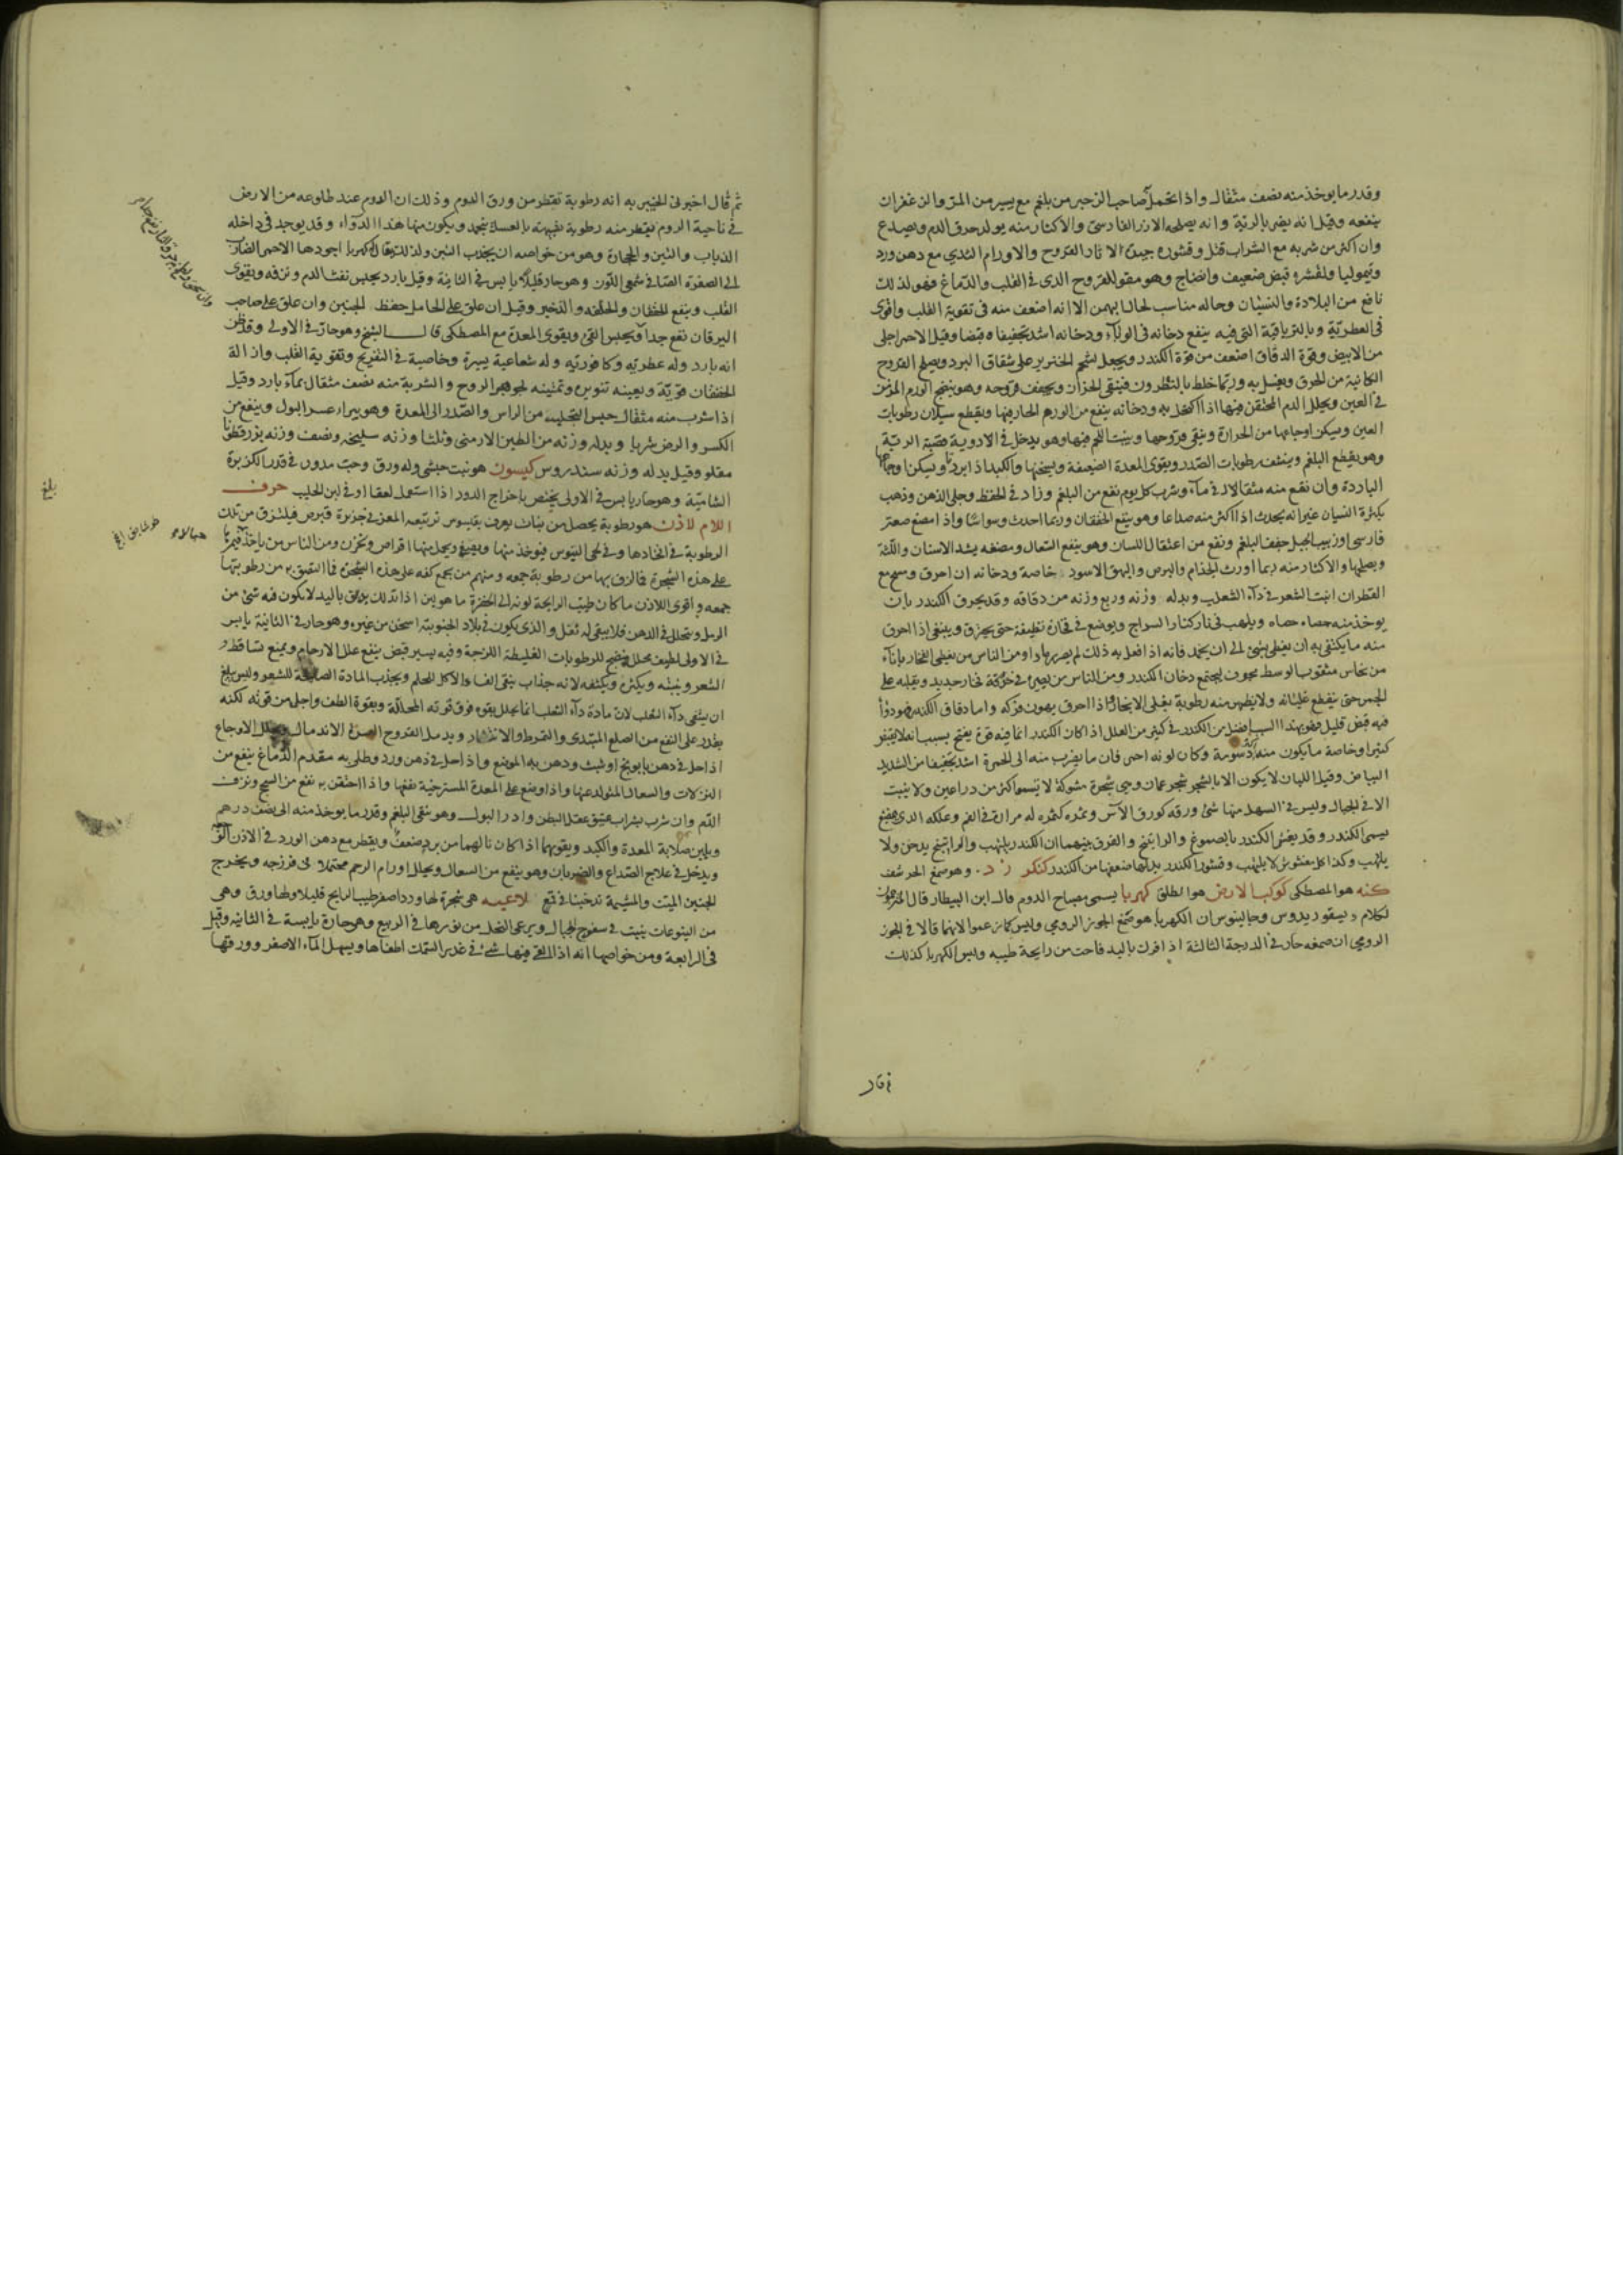 وقدر ما يوخذ منه نصف مثقال واذا تحمل صاحب الزحير من بلغم مع يسير من المر والزعفران
ينفعه وقيل انه يضر بالرية وانه يصلحه الارز الفارسى والاكثار منه يولد حرق الدم ويصدع
وان اكثر من شربه مع الشراب قتل وقشوره جيدة لاثار القروح والاورام الثدي مع دهن ورد
وقيموليا ولقشره قبض ضعيف وانضاج وهو مقو للروح الذى فى القلب والدماغ فهو لذلك
نافع من البلادة والنسيان وحاله مناسب لحال البهمن الا انه اضعف منه فى تقوية القلب واقوى
فى العطرية وبالترياقية التى فيه ينفع دخانه فى الوباء ودخانه اشد تجفيفا وقبضا وقيل الاحمر اجلى
من الابيض وقوة الدقاق اضعف من قوة الكندر ويجعل بشحم الخنزير على شقاق البرد ويصلح القروح
الكائنة من الحرق ويغسل به وربما خلط بالنطرون فينقى الحزاز ويجفف قروحه وهو ينضج الورم المزمن
فى العين ويحلل الدم المحتقن فيها اذا اكتحل به ودخانه ينفع من الورم الحار فيها ويقطع سيلان رطوبات
العين ويسكن اوجاعها من الحرارة وينقى قروحها وينبت اللحم فيها وهو يدخل فى الادوية قصبة الرية
وهو يقطع البلغم وينشف رطوبات الصدر ويقوى المعدة الضعيفة ويسخنها والكبد اذا بردتا ويسكن اوجاعها
الباردة وان نقع منه مثقالا فى ماء وشرب كل يوم نفع من البلغم وزاد فى الحفظ وجلى الذهن وذهب
بكثرة النسيان غير انه يحدث اذا اكثر منه صداعا وهو ينفع الخفقان وربما احدث وسواسا واذا مضغ صعتر
فارسى او زبيب الجبل جفف البلغم ونفع من اعتقال اللسان وهو ينفع السعال ومضغه يشد الاسنان واللثة
ويصلحها والاكثار منه ربما اورث الجذام والبرص والبهق الاسود خاصة ودخانه ان احرق وسحق مع
القطران انبت الشعر فى داء الثعلب وبدله وزنه وربع وزنه من دقاقه وقد يحرق الكندر بان
يوخذ منه حصاه حصاه ويلهب فى نار كنار السراج ويوضع فى فخارة نظيفة حتى يحترق وينبغى اذا احرق
منه ما يكتفى به ان يغطى بشئ الى ان يخمد فانه اذا فعل به ذلك لم يصر رمادا ومن الناس من يغطى الفخار باناء
من نحاس مثقوب الوسط مجوف ليجتمع دخان الكندر ومن الناس من يصيره فى خزفة فخار جديد ويقليه على
الجمر حتى ينقطع غليانه ولا يظهر منه رطوبة
فيه قبض قليل فهو بهذا السبب افضل من الكندر فى كثير من العلل اذا كان الكندر انما فيه قوة يفتح بسبب
كثيرا وخاصة ما يكون منه اكثر دسومة وكان لونه احمر فان ما يضرب منه الى الحمرة اشد تجفيفا من الشديد
البياض وقيل اللبان لا يكون الا بالشحر شحر عمان وهى شجرة مشوكة لا تسمو اكثر من ذراعين ولا ينبت
الا فى الجبال وليس فى السهل منها شئ ورقه كورق الآس وثمره كثمره له مرارة فى الفم وعلكه الذى يمضغ
يسمى الكندر وقد يغش الكندر بالصموغ والراتينج والفرق بينهما ان الكندر يلتهب والراتينج يدخن ولا
يلتهب وكذا كل مغشوش لا يلتهب وقشور الكندر بدلها ضعفها من الكندر كنكرزد وهو صمغ الحرشف
كنه هو المصطكى كوكب الارض هو الطلق كهربا يسمى مصباح الروم قال ابن البيطار قال
لكلام ديسقوريدوس وجالينوس ان الكهربا هو صمغ الجوز الرومى وليس كما زعموا لانهما قالا فى الجوز
الرومى ان صمغه حار فى الدرجة الثالثة اذا فرك باليد فاحت منه رايحة طيبه وليس الكهربا كذلك
ثم قال اخبرنى الخبير به انه رطوبة تقطر من ورق الدوم وذلك ان الدوم عند طلوعه من الارض
فى ناحية الروم يقطر منه رطوبة شبيهة بالعسل يتجمد ويكون منها هذا الدواء وقد يوجد فى داخله
الذباب والتبن والحجارة وهو من خواصه ان يجذب التبن ولذلك يقال كهربا اجودها الاحمر الضارب
الى الصفرة الصافى شمعى اللون وهو حار قليلا يابس فى الثانية وقيل بارد يحبس نفث الدم ونزفه ويقوى
القلب وينفع الخفقان وقيل ان علق على الحامل حفظ الجنين وان علق على صاحب
اليرقان نفع جدا ويحبس القئ ويقوى المعدة مع المصطكى قال الشيخ وهو حار فى الاولى وقد ظن
انه بارد وله عطرية وكافورية وله شعاعية يسيرة وخاصية فى التفريح وتقوية القلب وازالة
الخفقان قوية ويعينه تنويره وتمتينه لجوهر الروح والشربة منه نصف مثقال بماء بارد وقيل
اذا شرب منه مثقال حبس التحلب من الراس والصدر الى المعدة وهو يبرء عسر البول وينفع من
الكسر والرض شربا وبدله وزنه من الطين الارمنى وثلثا وزنه سليخه ونصف وزنه بزرقطونا
مقلو وقيل بدله وزنه سندروس كيسون هو نبت حبشى وله ورق وحب مدور فى قدر الكزبرة
الشامية وهو حار يابس فى الاولى يختص باخراج الدود اذا استعمل لعقا او فى لبن الحليب حرف
اللام لاذن هو رطوبة يحصل من نبات يعرف بقليسوس ترتعيه المعز فى جزيرة قبرص فيلتزق من تلك
الرطوبة فى افخاذها وفى لحى التيوس فيوخذ منها ويصفى ويجعل منها اقراص ويخزن ومن الناس من ياخذ
على هذه الشجرة فالزق بها من رطوبة جمعه ومنهم من يجمع كفه على هذه الشجرة فما التصق به من رطوبتها
جمعه واقوى اللاذن ما كان طيب الرايحة لونه الى الخضرة ما هو لين اذا تدلك يدبق باليد لا يكون فيه شئ من
الرمل وينحل فى الدهن فلا يبقى له ثقل والذى يكون فى بلاد الجنوبية اسخن من غيره وهو حار فى الثانية يابس
فى الاولى لطيف محلل منضج للرطوبات الغليظة اللزجة وفيه يسير قبض ينفع علل الارحام ويمنع تساقط
الشعر وينبته ويكثره ويكثفه لانه جذاب ينقى ويجذب المادة الصالحة للشعر وليس يبلغ
ان يشفى داء الثعلب لان مادة داء الثعلب انما يحلل بقوه فوق قوته المحللة وبقوة الطف واجلى من قوته لكنه
يقدر على النفع من الصلع المبتدى والتمرط والانتثار ويدمل القروح العسرة الاندمال ويحلل الاوجاع
اذا حل فى دهن بابونج او شبث ودهن به الموضع واذا حل فى دهن ورد وطلى به مقدم الدماغ نفع من
النزلات والسعال المتولد عنها واذا وضع على المعدة المسترخية نفعها واذا احتقن به نفع من السحج ونزف
الدم وان شرب بشراب عتيق عقل البطن وادر البول وهو ينقى البلغم وقدر ما يوخذ منه الى نصف درهم
ويلين صلابة المعدة والكبد ويقويهما اذا كان نالهما من برد ضعف ويقطر مع دهن الورد فى الاذن
ويدخل فى علاج الصداع والضربان وهو ينفع من السعال ويحلل اورام الرحم محتملا فى فرزجه ويخرج
الجنين الميت والمشيمة تدخينا فى قمع لاعيه هى شجرة لها ورد اصفر طيب الرايح قليلا ولها ورق وهى
من اليتوعات ينبت فى سفوح الجبال ويرعى النحل من نورها فى الربيع وهو حارة يابسة فى الثانية وقيل
فى الرابعة ومن خواصها انه اذا القى فيها شئ فى غدير السمك اطفاها ويسهل الماء الاصفر وورقها
بلغ